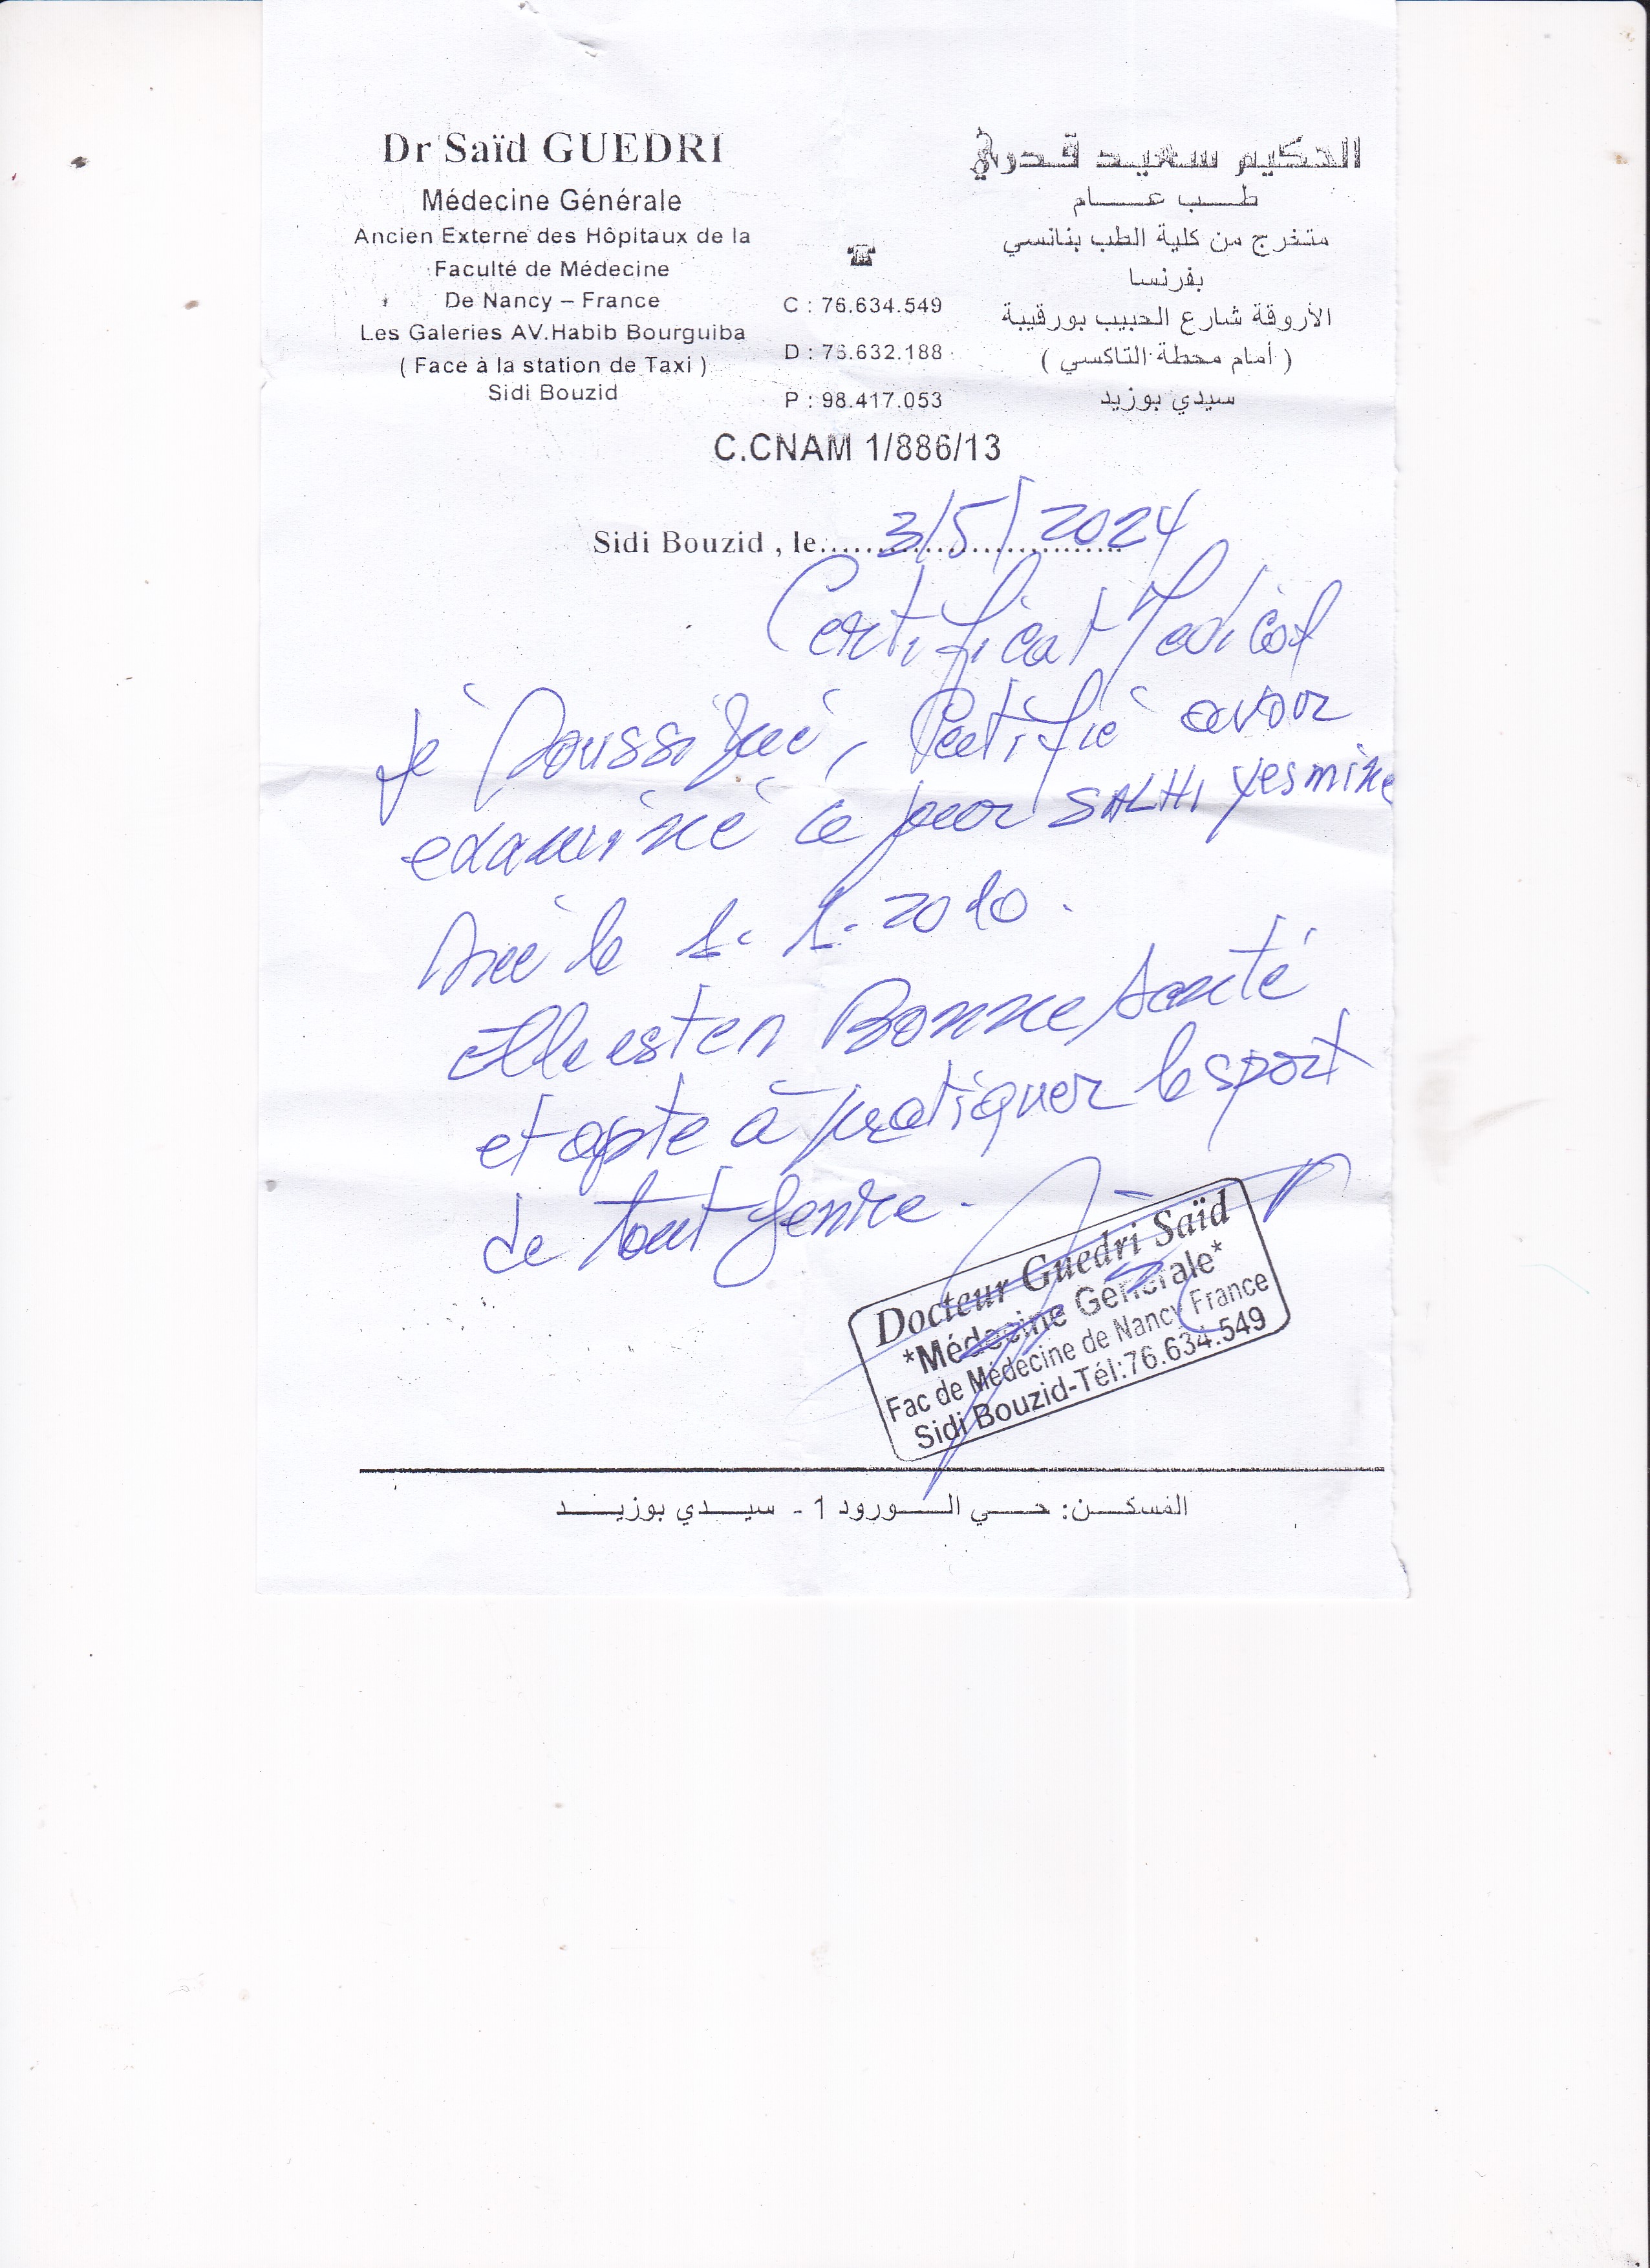 Dr Saïd GUEDRI
Médecine Générale
Ancien Externe des Hôpitaux de la
Faculté de Médecine
De Nancy – France
Les Galeries AV.Habib Bourguiba
( Face à la station de Taxi )
Sidi Bouzid
☎
C : 76.634.549
D : 76.632.188
P : 98.417.053
الحكيم سعيد قدري
طب عام
متخرج من كلية الطب بنانسي
بفرنسا
الأروقة شارع الحبيب بورقيبة
( أمام محطة التاكسي )
سيدي بوزيد
C.CNAM 1/886/13
Sidi Bouzid , le 3/5/2024
Certificat Medical
je soussigné, Certifié avoir
examiné ce jour SALHI Yesmine
née le 1. 1. 2010.
Elle est en Bonne santé
et apte à pratiquer le sport
de tout genre.
Docteur Guedri Saïd
*Médecine Générale*
Fac de Médecine de Nancy France
Sidi Bouzid-Tél:76.634.549
المسكن: حي الورود 1 - سيدي بوزيد